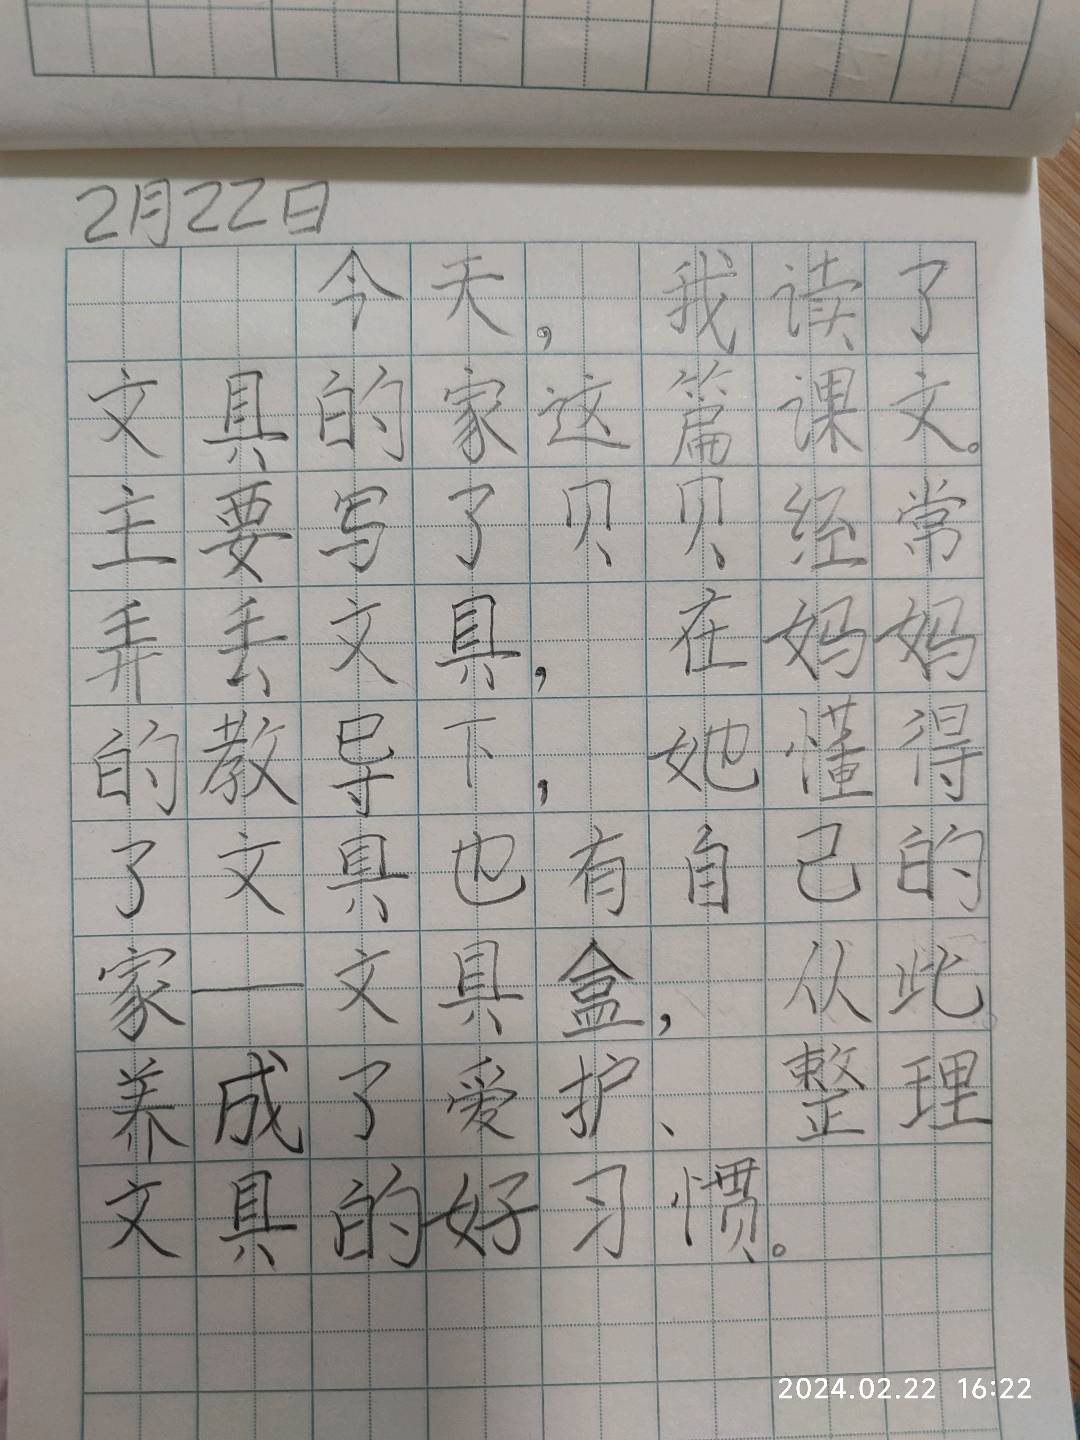 2月22日
今天，我读了
文具的家这篇课文。
主要写了贝贝经常
弄丢文具，在妈妈
的教导下，她懂得
了文具也有自己的
家—文具盒，从此
养成了爱护、整理
文具的好习惯。
2024.02.22 16:22